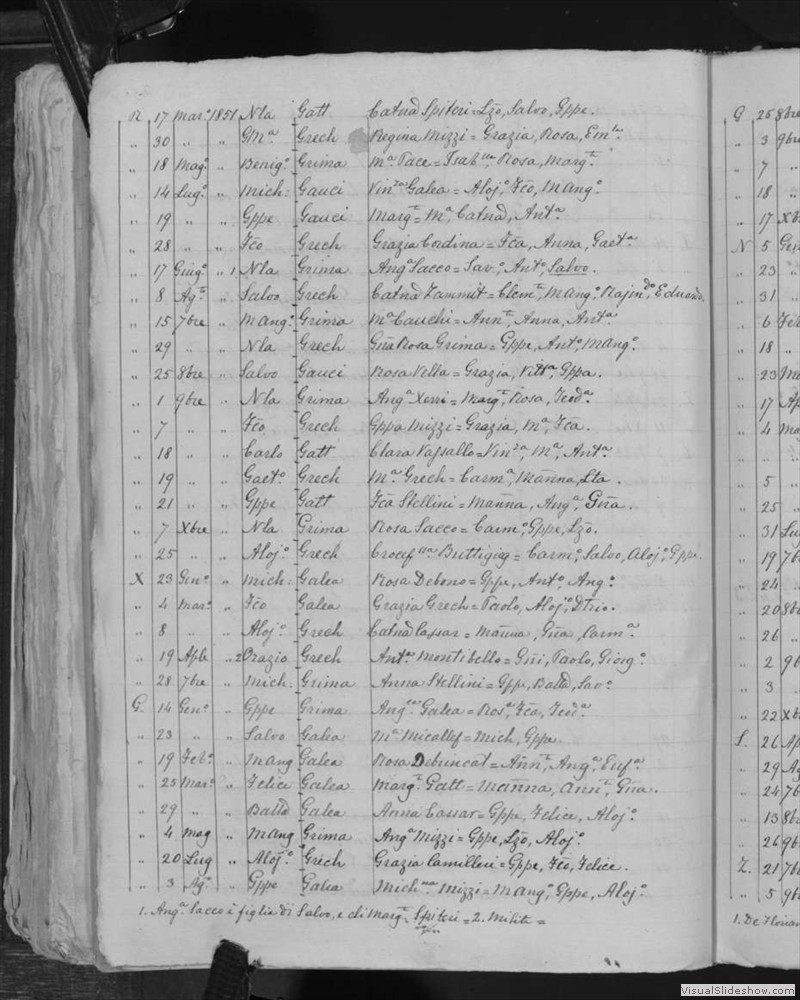 R 17 Mar.º 1851 Nla Gatt Catnā Spiteri = Lzō, Salvo, Gppe.
„ 30 „ „ Gmª Grech Regina Mizzi = Grazia, Rosa, Em.ᵗᵃ
„ 18 Mag.º „ Benig.º Grima Mª Pace = Isabˡˡᵃ Rosa, Marg.ᵗ
„ 14 Lug.º „ Mich: Gauci Vinᶻᵃ Galea = Aloj.º, Fcō, Mang.º
„ 19 „ „ Gppe Gauci Marg.ᵗ = Mª, Catnā, Ant.ª
„ 28 „ „ Fcō Grech Grazia Cardina = Fcā, Anna, Gaet.ª
„ 17 Giug.º „ 1 Nla Grima Ang.ª Sacco = Sav.º, Ant.º, Salvo.
„ 8 Ag.ᵗ „ Salvo Grech Catnā Zammit = Clem.ᵗ, Mang.º Rajim.ᵈᵒ, Eduardo.
„ 15 7bre „ Mang.º Grima Mª Cauchi = Ann.ᵗ, Anna, Ant.ª
„ 29 „ „ Nla Grech Gñā Rosa Grima = Gppe, Ant.º, Mang.º
„ 25 8bre „ Salvo Gauci Rosa Vella = Grazia, Vitt.ª, Gppa.
„ 1 9bre „ Nla Grima Ang.ª Xerri = Marg.ᵗ, Rosa, Teod.ª
„ 7 „ „ Fcō Grech Gppa Mizzi = Grazia, Mª, Fcā.
„ 18 „ „ Carlo Gatt Clara Vassallo = Vinᶻᵃ, Mª, Ant.ª
„ 19 „ „ Gaet.º Grech Mª Grech = Carm.ª, Mañna, Lta.
„ 21 „ „ Gppe Gatt Fcā Stellini = Mañna, Ang.ª, Gñā.
„ 7 Xbre „ Nla Grima Rosa Sacco = Carm.º, Gppe, Lzō.
„ 25 „ „ Aloj.º Grech Crocefˢˢᵃ Buttigieg = Carm.º, Salvo, Aloj.º, Gppe.
X 23 Gen.º „ Mich: Galea Rosa Debono = Gppe, Ant.º, Ang.º
„ 4 Mar.º „ Fcō Galea Grazia Grech = Paolo, Aloj.º, Dtrio.
„ 8 „ „ Aloj.º Grech Catnā Cassar = Mañna, Gñā, Carm.ª
„ 19 Aple „ 2 Orazio Grech Ant.ª Montibello = Gñi, Paolo, Giorg.º
„ 28 7bre „ Mich: Grima Anna Stellini = Gppe, Balda, Sav.º
G. 14 Gen.º „ Gppe Grima Angˡᵃ Galea = Ros.ª, Fcā, Teod.ª
„ 23 „ „ Salvo Galea Mª Micallef = Mich, Gppe.
„ 19 Feb.º „ Mang Galea Rosa Debrincat = Ann.ᵗ, Ang.ª, Euf.ª
„ 25 Mar.º „ Felice Galea Marg.ᵗ Gatt = Mañna, Ann.ᵗ, Gñā.
„ 29 „ „ Balda Galea Anna Cassar = Gppe, Felice, Aloj.º
„ 4 Mag „ Mang Grima Ang.ª Mizzi = Gppe, Lzō, Aloj.º
„ 20 Lug „ Aloj.º Grech Grazia Camilleri = Gppe, Fcō, Felice.
„ 3 Ag.º „ Gppe Galea Michˡⁿᵃ Mizzi = Mang.º, Gppe, Aloj.º
1. Ang.ª Sacco è figlia di Salvo, e di Marg.ᵗ Spiteri = 2. Milite =
G 25 8bre
„ 3 9bre
„ 7 „
„ 18 „
„ 17 Xb
N 5 Gen
„ 23 „
„ 31 „
„ 6 Feb
„ 18 „
„ 23 Ma
„ 17 Ap
„ 4 Ma
„ „ „
„ 5 „
„ 25 „
„ 31 Lu
„ 19 7b
„ 24 „
„ 20 8b
„ 26 „
„ 2 9b
„ 3 „
„ 22 Xb
S. 26 Ap
„ 29 Ag
„ 24 7b
„ 13 8b
„ 26 9b
Z. 21 7b
„ 5 9b
1. De Florian
VisualSlideshow.com